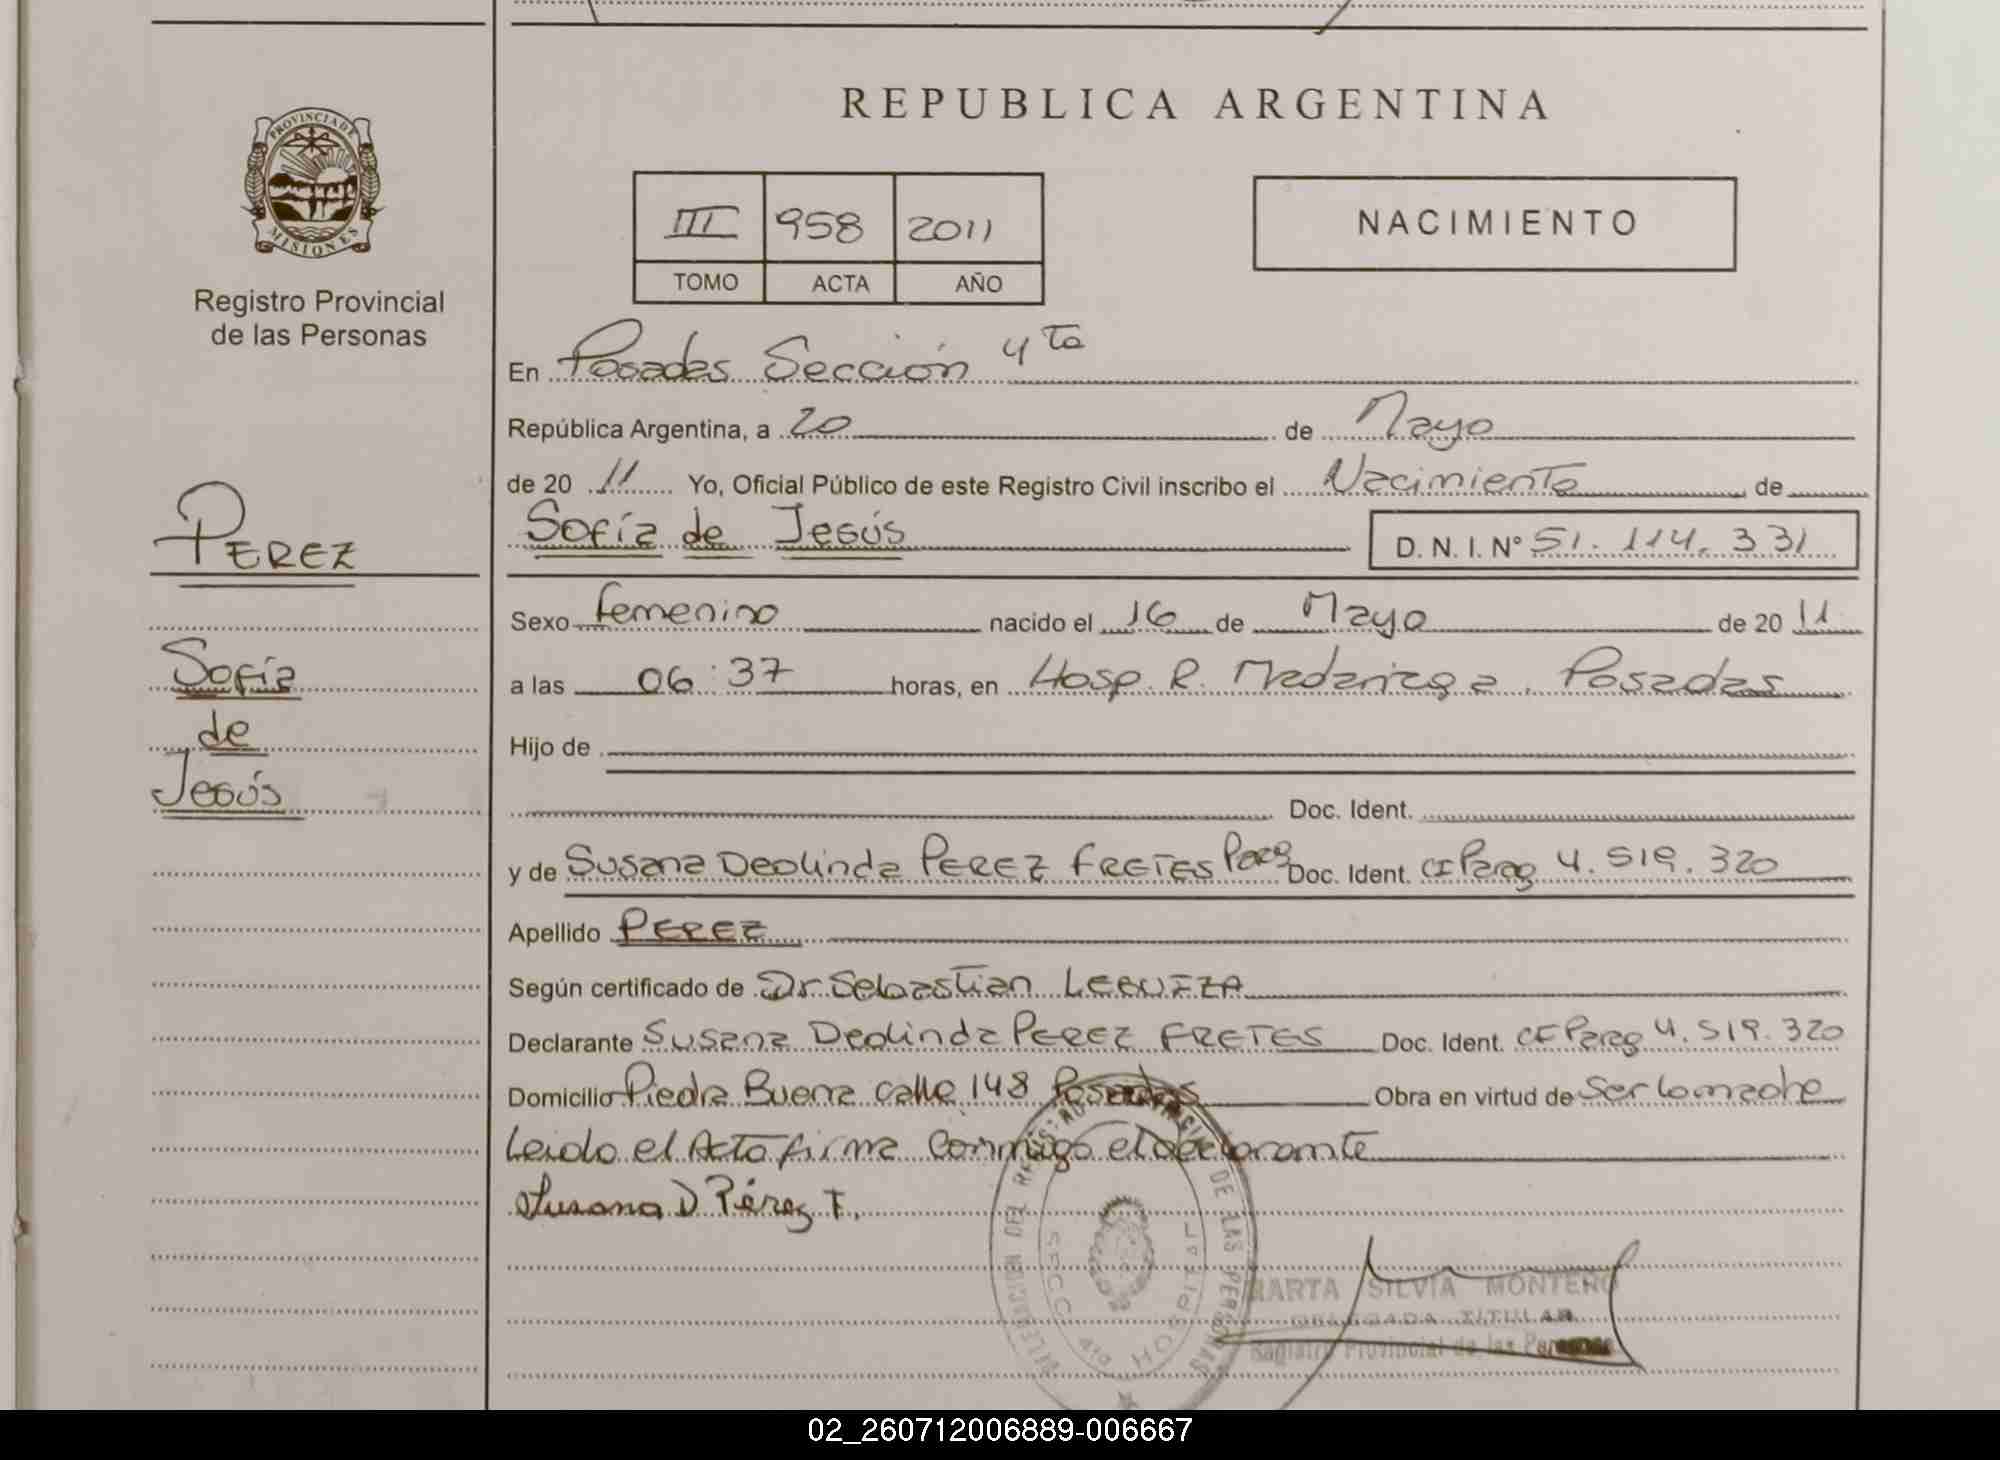 PROVINCIA DE
MISIONES
Registro Provincial
de las Personas
PEREZ
Sofía
de
Jesús
REPUBLICA ARGENTINA
III 958 2011
TOMO ACTA AÑO
NACIMIENTO
En Posadas Sección 4ta
República Argentina, a 20 de Mayo
de 20 11 Yo, Oficial Público de este Registro Civil inscribo el Nacimiento de
Sofía de Jesús D. N. I. Nº 51.114.331
Sexo femenino nacido el 16 de Mayo de 20 11
a las 06:37 horas, en Hosp. R. Madariaga. Posadas
Hijo de
Doc. Ident.
y de Susana Deolinda PEREZ FRETES Parg Doc. Ident. CI Parag 4.519.320
Apellido PEREZ
Según certificado de Dr. Sebastian
Declarante Susana Deolinda PEREZ FRETES Doc. Ident. CI Parag 4.519.320
Domicilio Piedra Buena calle 148 Posadas Obra en virtud de Ser la madre
Leido el Acta firma conmigo el declarante
Susana D Pérez F.
DELEGACION DEL DE LAS PERSONAS
SECC. 4ta HOSPITAL
MARTA SILVIA MONTERO
DELEGADA TITULAR
Registro Provincial de las Personas
02_260712006889-006667